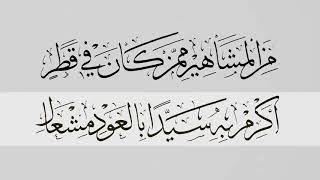 من المشاهير ممن كان في قطر
أكرم به سيدا بالعود مشعال